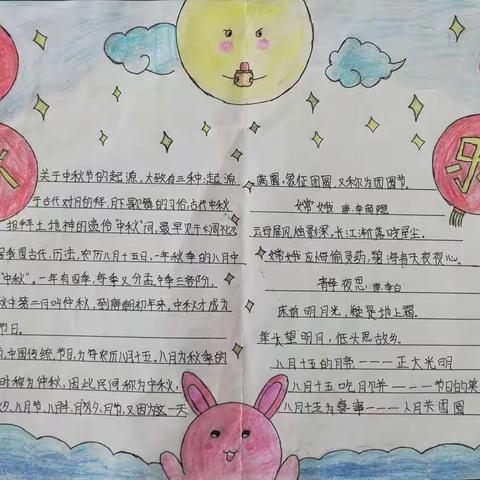 关于中秋节的起源,大致有三种:起源
于古代对月的拜,月下歌舞的习俗:古代中秋
拜土地神的遗俗"中秋"词,最早见于《周礼》
我国古代,历法,农历八月十五日,一年秋季的八月中
"中秋"。一年有四季,每季又分孟仲季三部分,
秋中第二月叫仲秋,到唐朝初年来,中秋才成为
节日。
中国传统,节日,为每农历八月十五,八月为秋季的
时称为仲秋,因此民间称为中秋,
夕,八月节,八月半,月夕,月节,又因为这一天
满圆,象征团圆,又称为团圆节。
嫦娥 唐.李商隐
云母屏风烛影深,长江渐落晓星尘。
嫦娥应悔偷灵药,碧海青天夜夜心。
静夜思 唐.李白
床前明月光,疑是地上霜。
举头望明月,低头思故乡。
八月十五的月亮———正大光明
八月十五吃月饼———节日的美
八月十五办喜事———人月共团圆
乐